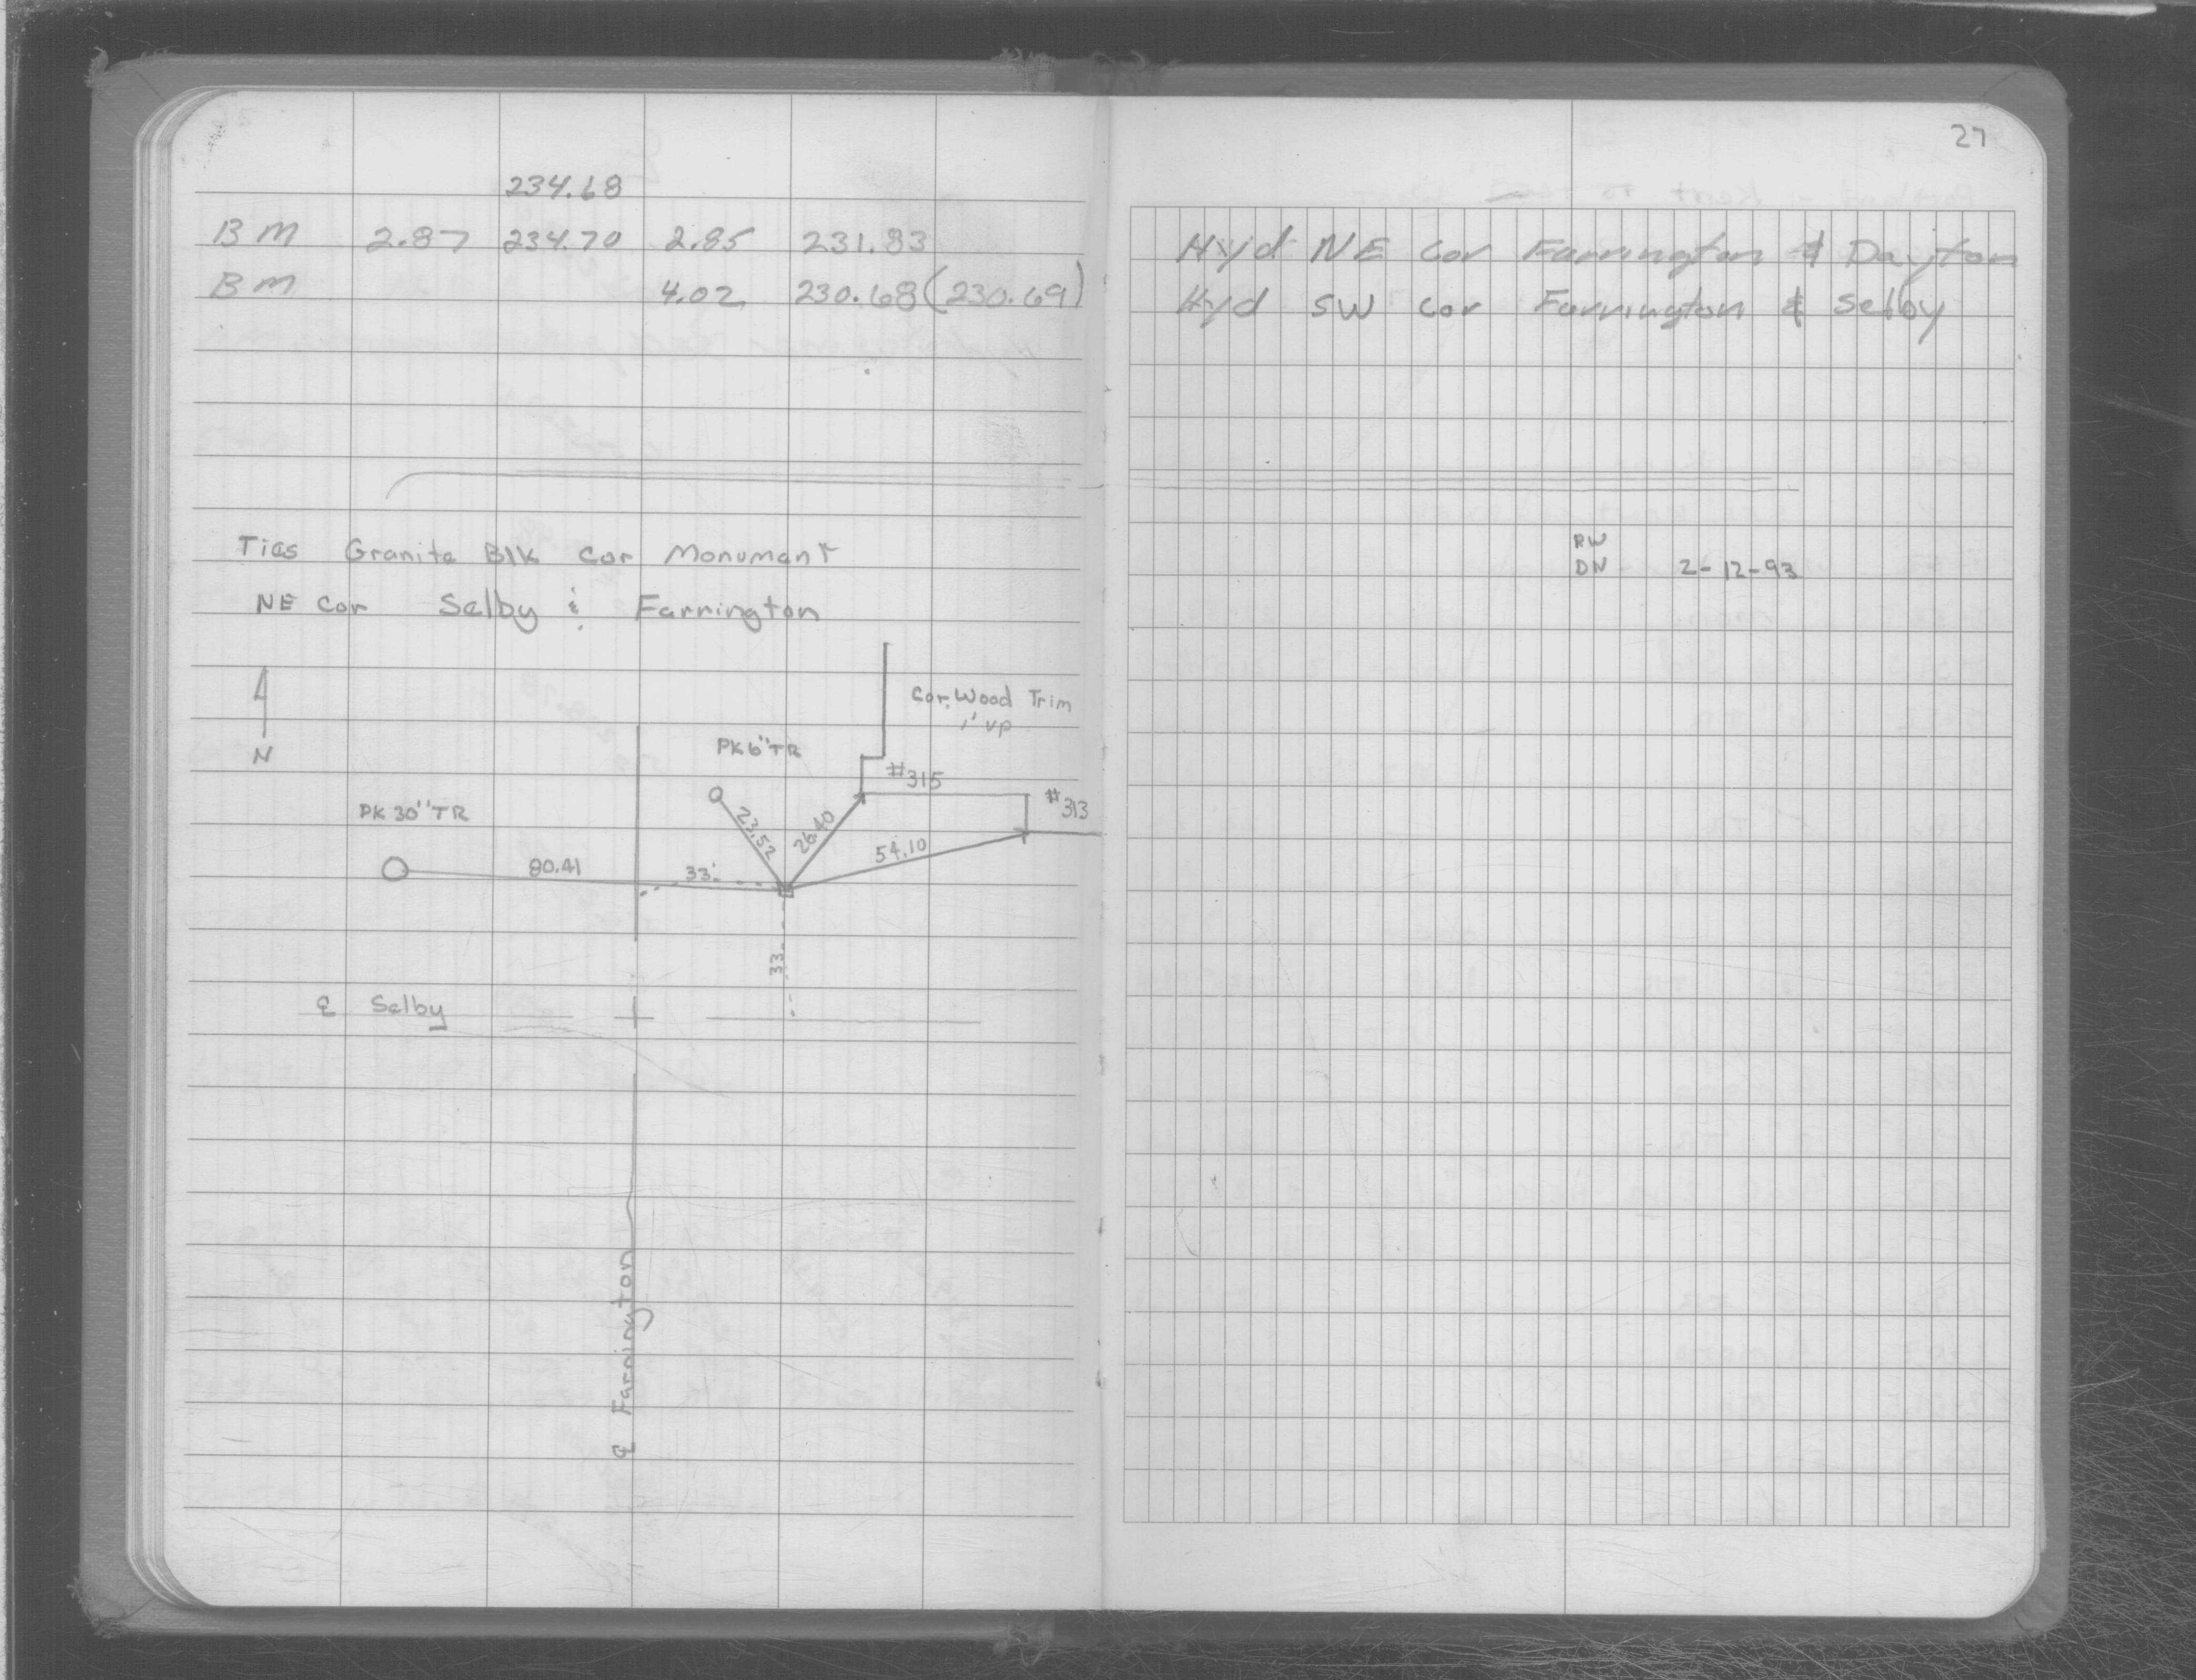 27
234.68
BM 2.87 234.70 2.85 231.83 Hyd NE Cor Farrington & Dayton
BM 4.02 230.68 (230.69) Hyd SW Cor Farrington & Selby
Ties Granite Blk Cor Monument
RW
DN 2-12-93
NE Cor Selby & Farrington
Cor. Wood Trim
1' up
N
PK 6" TR
#315
#313
PK 30" TR
23.52
26.40
54.10
80.41
33'
33'
℄ Selby
℄ Farrington